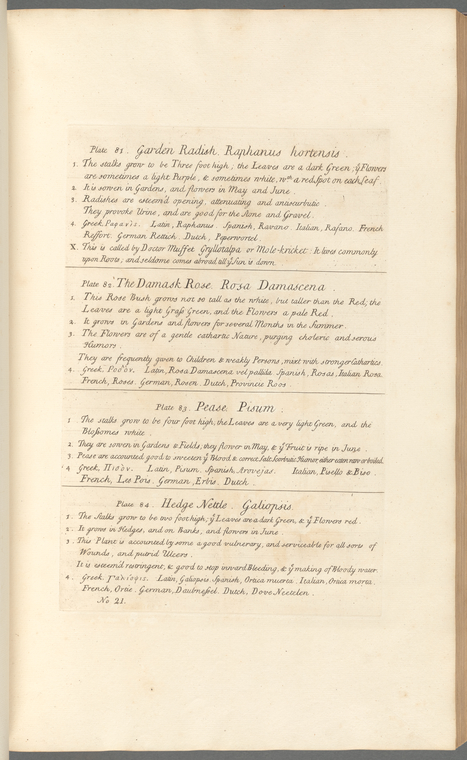 Plate 81. Garden Radish. Raphanus hortensis.
1. The stalks grow to be Three foot high; the Leaves are a dark Green; ẙ Flowers
are sometimes a light Purple, & sometimes white, wᵗʰ a red spot on each leaf.
2. It is sown in Gardens, and flowers in May and June
3. Radishes are esteem'd opening, attenuating and antiscorbutic.
They provoke Urine, and are good for the Stone and Gravel.
4. Greek, Ραφανὶς. Latin, Raphanus Spanish, Ravano. Italian, Rafano. French
Reffort. German Rettich. Dutch, Peperwortel.
X. This is called by Doctor Muffet Gryllotalpa or Mole-kricket: It lives commonly
upon Roots, and seldome comes abroad till ẙ Sun is down.
Plate 82. The Damask Rose. Rosa Damascena
1. This Rose Bush grows not so tall as the white, but taller than the Red; the
Leaves are a light Grass Green, and the Flowers a pale Red.
2. It grows in Gardens and flowers for several Months in the Summer.
3. The Flowers are of a gentle cathartic Nature, purging choleric and serous
Humors.
They are frequently given to Children & weakly Persons, mixt with stronger Cathartics.
4. Greek, Ροδὸν. Latin, Rosa Damascena vel pallida. Spanish, Rosas, Italian Rosa.
French, Roses. German, Rosen. Dutch, Provincie Roos.
Plate 83. Pease Pisum.
1 The stalks grow to be four foot high; the Leaves are a very light Green, and the
Blossomes white.
2. They are sowen in Gardens & Fields; they flower in May, & ẙ Fruit is ripe in June.
3. Pease are accounted good to sweeten ẙ Blood & correct Salt Scorbutic Humors, either eaten raw or boiled.
4 Greek, Πισὸν. Latin, Pisum. Spanish Arovejas. Italian, Pisello & Biso.
French, Les Pois. German, Erbis. Dutch.
Plate 84. Hedge Nettle. Galiopsis.
1. The Stalks grow to be two foot high; ẙ Leaves are a dark Green, & ẙ Flowers red.
2. It grows in Hedges, and on Banks, and flowers in June
3. This Plant is accounted by some a good vulnerary, and serviceable for all sorts of
Wounds, and putrid Ulcers.
It is esteem'd restringent, & good to stop inward Bleeding, & ẙ making of Bloody water.
4. Greek. Γαλίοψις. Latin, Galiopsis. Spanish, Ortica muerta. Italian, Ortica morta.
French, Ortie. German, Daubnessel. Dutch, Dove Neetelen.
No 21.